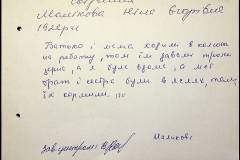 Маликова Юлия Егоровна
1928 г.р.
Батько і мама ходили в колхоз
на работу, там їм давали трохи
зерна, а я була вдома, а мої
брат і сестра були в яслях, там
їх кормили.
Маликова
Зав. центром